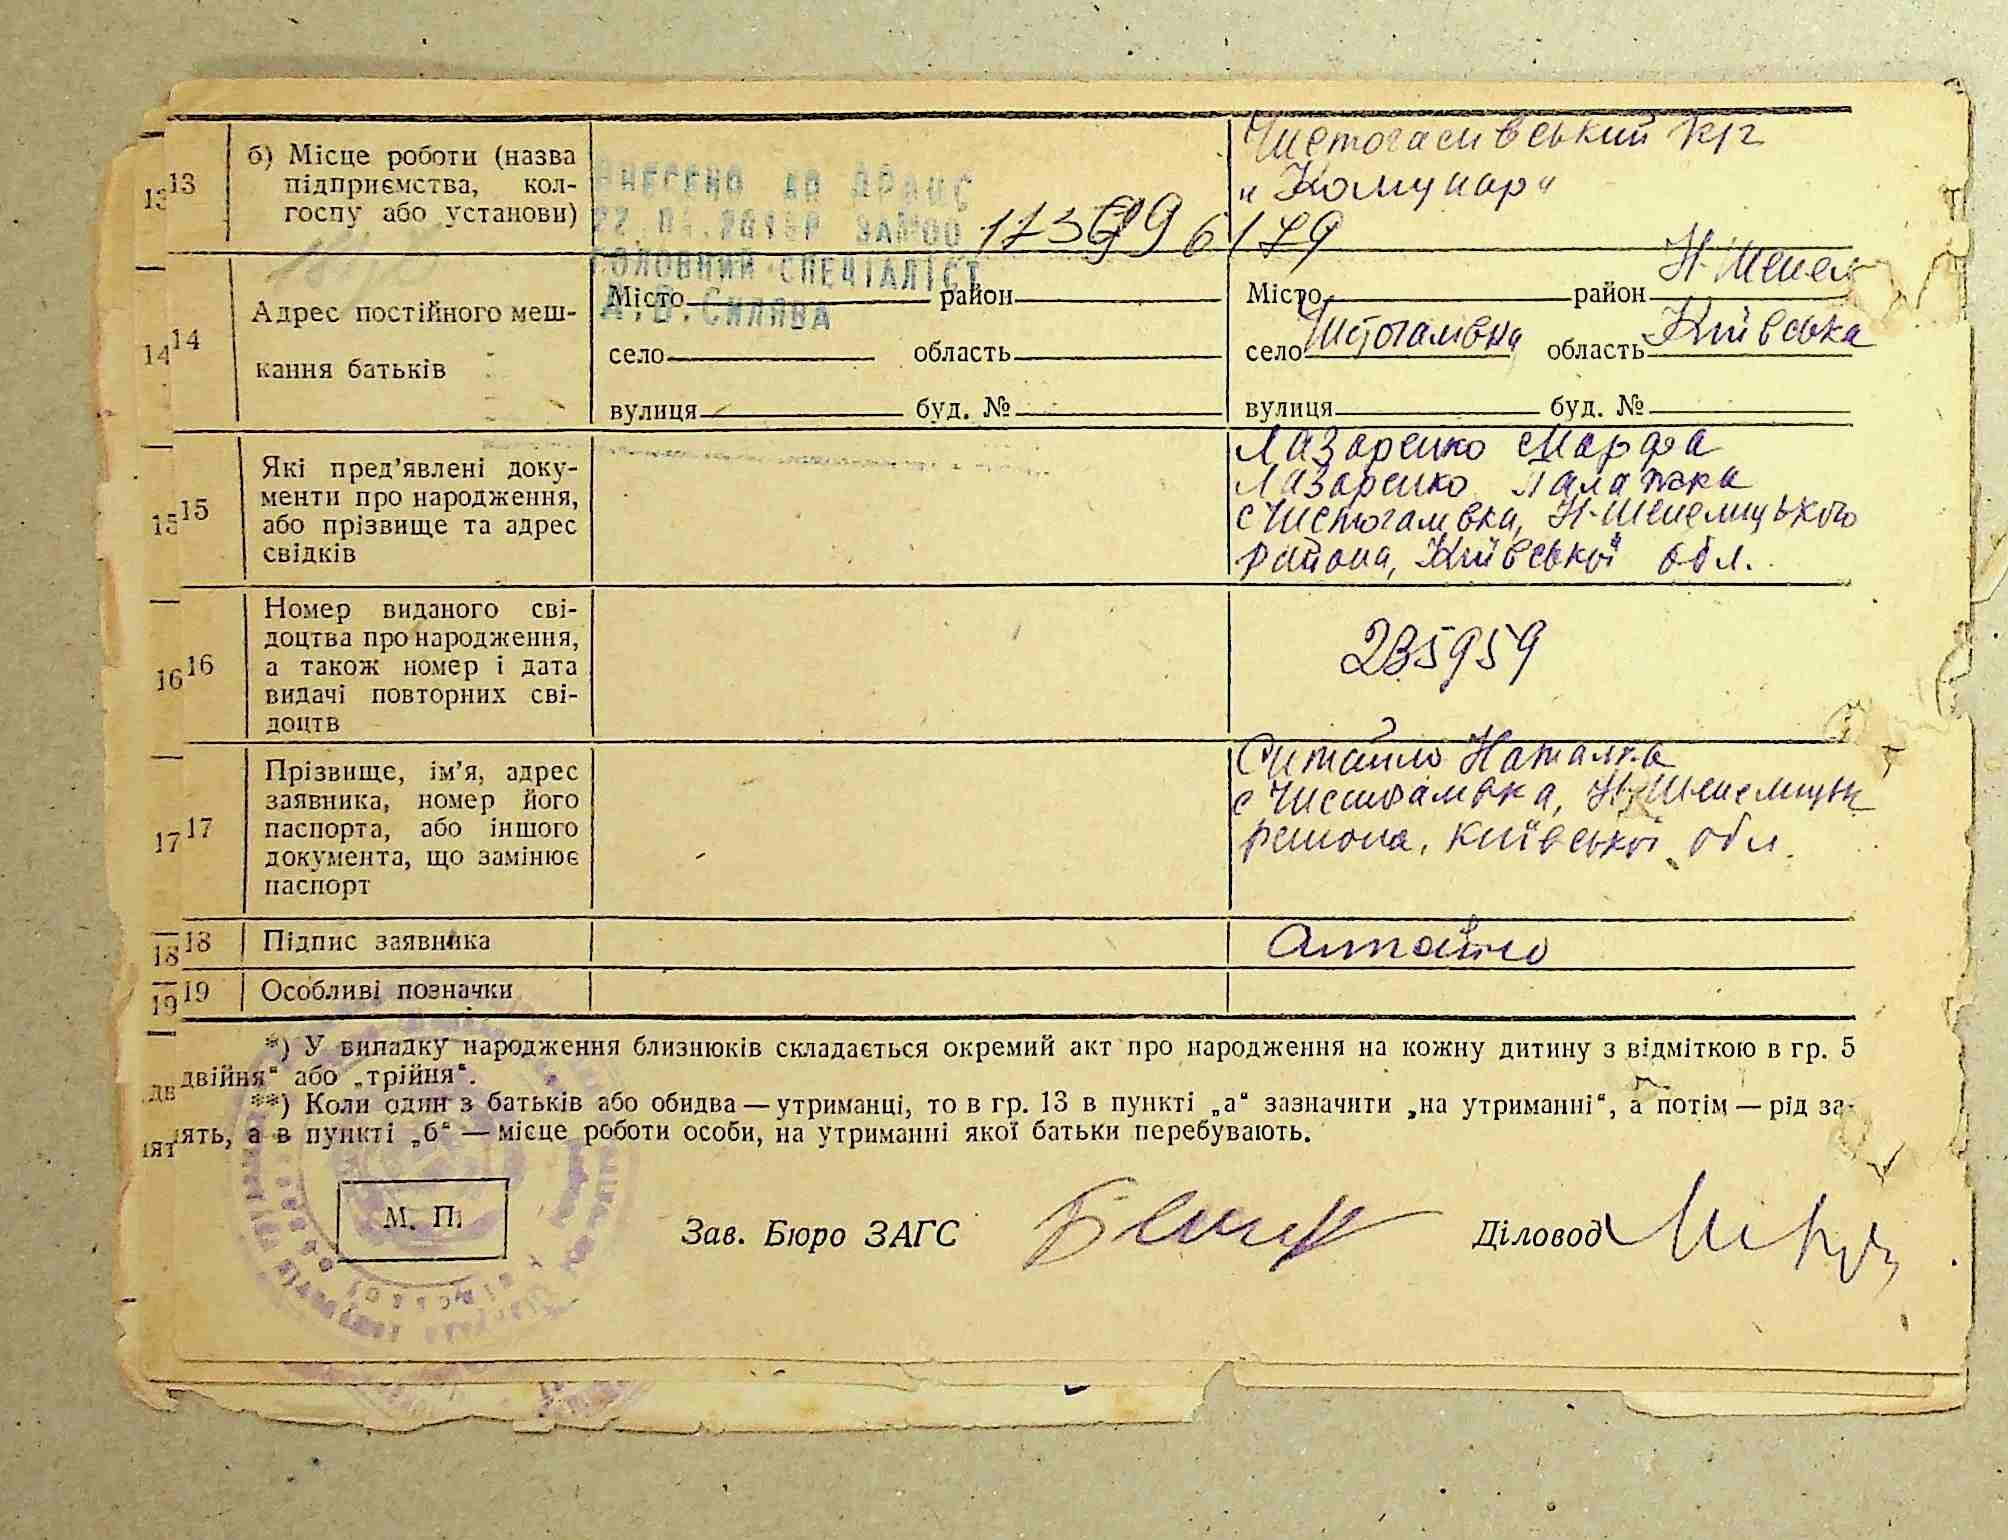 13 13
б) Місце роботи (назва
підприємства, кол-
госпу або установи)
ВНЕСЕНО ДО ДРАЦС
ГОЛОВНИЙ СПЕЦІАЛІСТ
А.В.СИЛЯВА
6179
Чистогалівський к/г
„Комунар“
14 14
Адрес постійного меш-
кання батьків
Місто район
село область
вулиця буд. №
Місто район Н-Шепел
село Чистогалівка область Київська
вулиця буд. №
15 15
Які пред’явлені доку-
менти про народження,
або прізвище та адрес
свідків
Лазаренко Марфа
Лазаренко Палажка
с Чистогалівка, Н-Шепелицького
района, Київської обл.
16 16
Номер виданого сві-
доцтва про народження,
а також номер і дата
видачі повторних сві-
доцтв
235959
17 17
Прізвище, ім’я, адрес
заявника, номер його
паспорта, або іншого
документа, що замінює
паспорт
Наталка
с Чистогалівка, Н-Шепелицьк
района, Київської обл.
18 18
Підпис заявника
19 19
Особливі позначки
*) У випадку народження близнюків складається окремий акт про народження на кожну дитину з відміткою в гр. 5
дв двійня“ або „трійня“.
**) Коли один з батьків або обидва — утриманці, то в гр. 13 в пункті „а“ зазначити „на утриманні“, а потім — рід за-
ят нять, а в пункті „б“ — місце роботи особи, на утриманні якої батьки перебувають.
М. П.
Зав. Бюро ЗАГС
Діловод